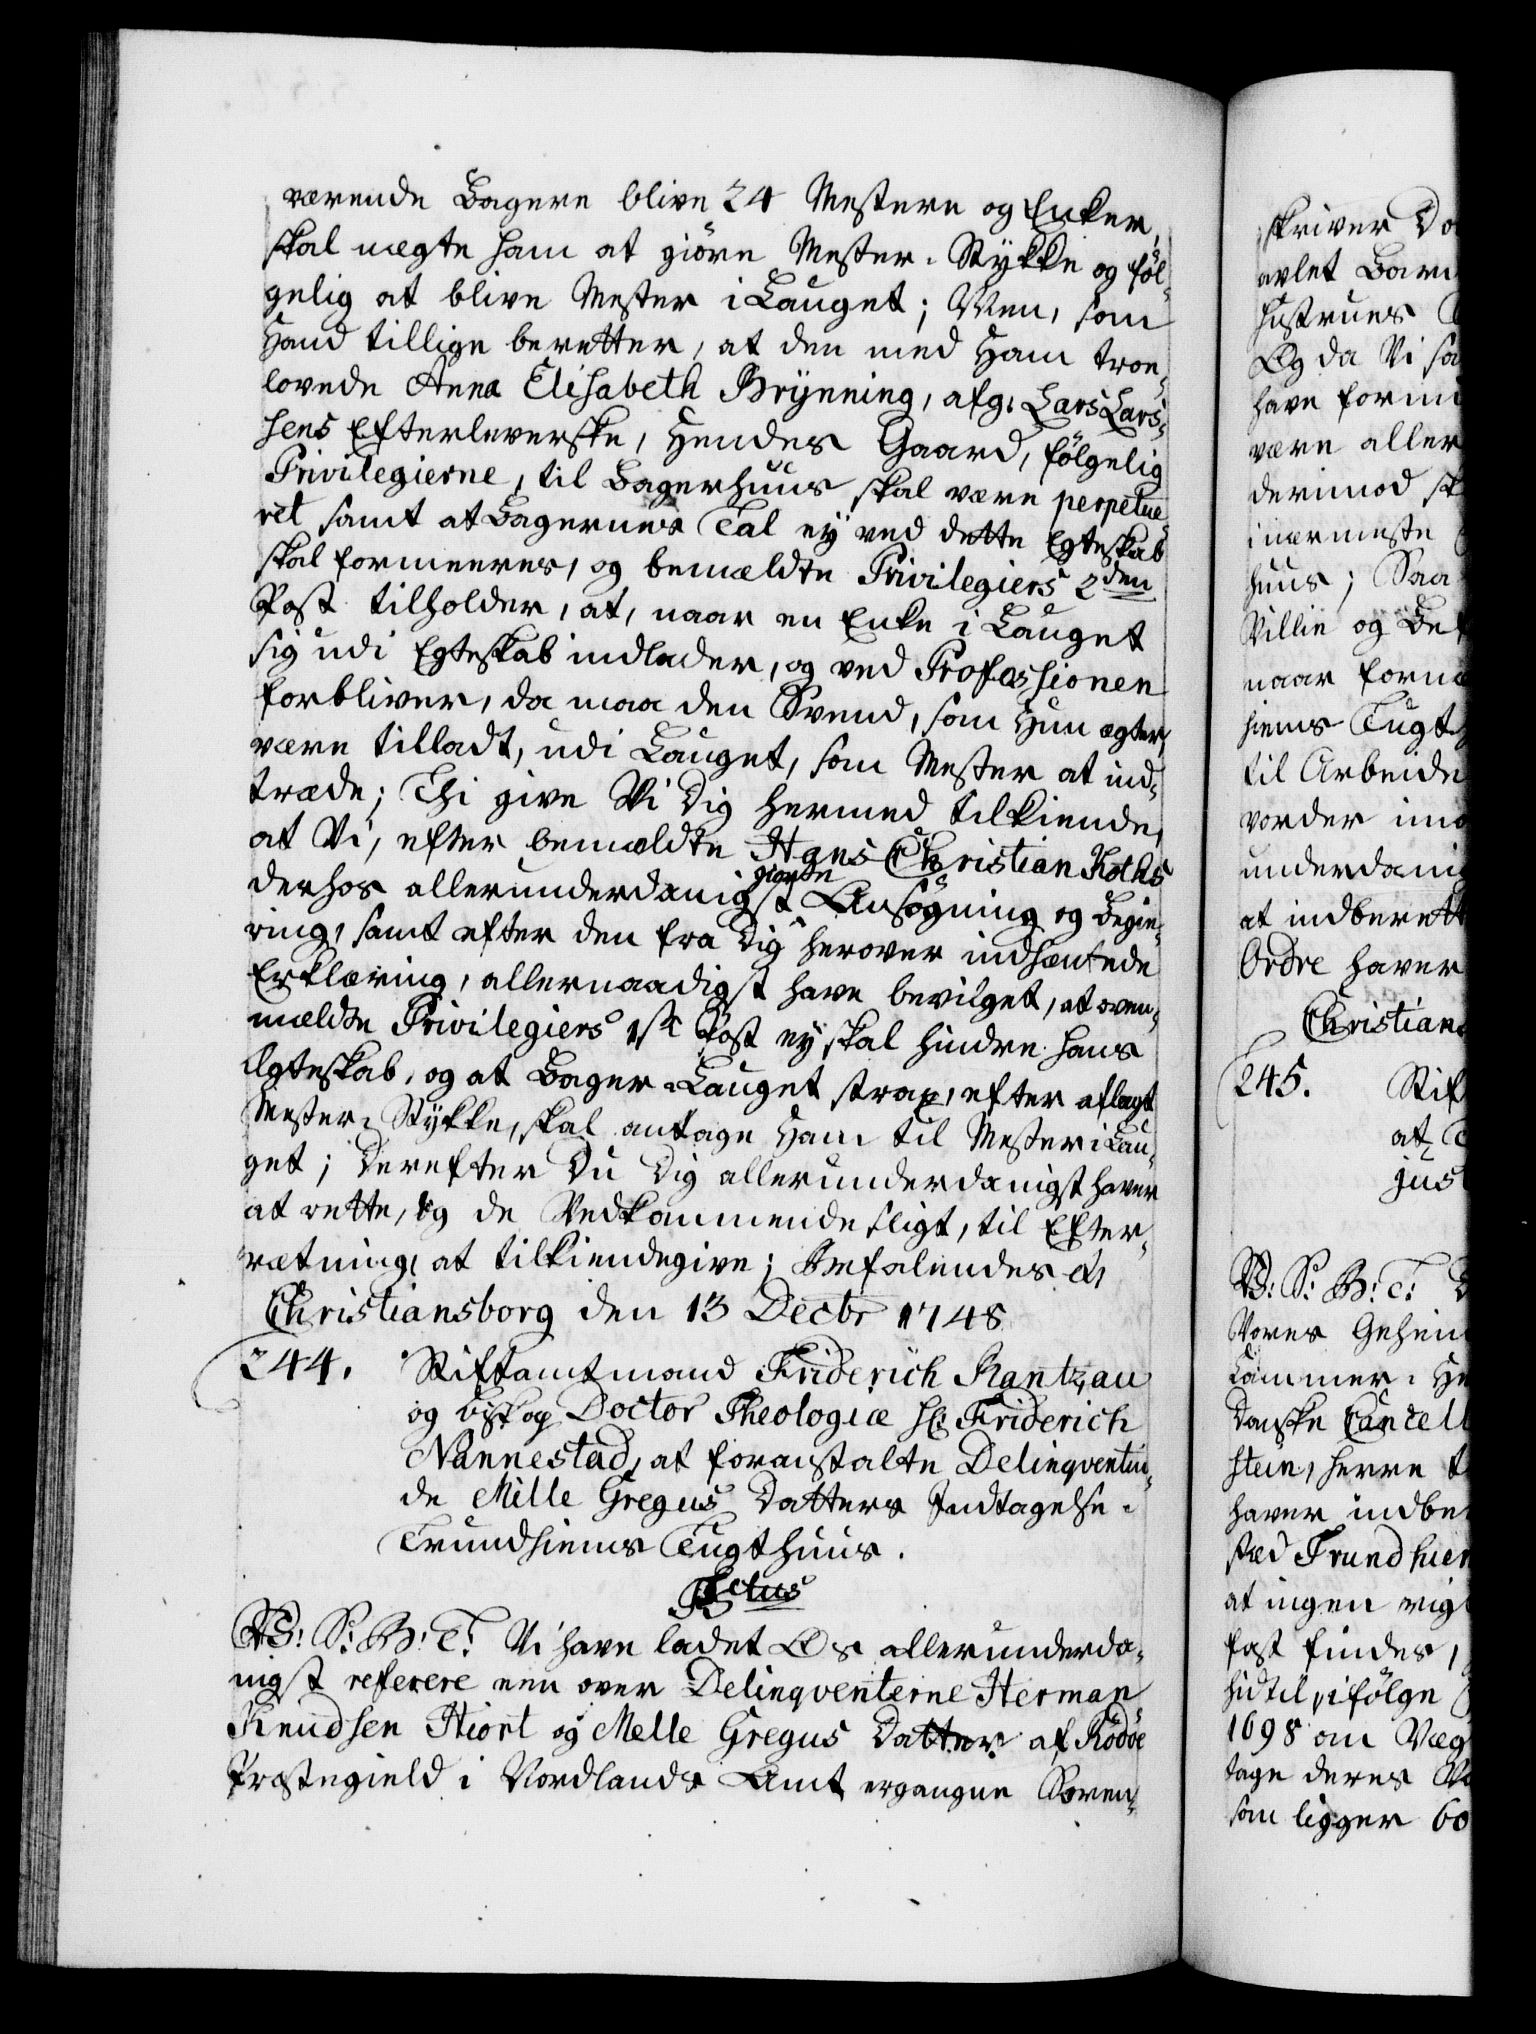 værende Bagere blive 24 Mestere og Enker,
skal nægte ham at giöre Mester-Stykke og föl-
gelig at blive Mester i Lauget; Men, som
Hand tillige beretter, at den med Ham troe-
lovede Anna Elisabeth Brynning, afg: Lars Lars-
sens Efterleverske, Hendes Gaard, fölgelig
Privilegierne, til Bagerhuus skal være perpetue-
ret samt at Bagernes Tal ey ved dette Egteskab
skal formeeres, og bemældte Privilegiers 2den
Post tilholder, at, naar en Enke i Lauget
sig udi Egteskab indlader, og ved Professionen
forbliver, da maa den Svend, som Hun ægter,
være tilladt, udi Lauget, som Mester at ind-
træde; Thi give Vi Dig hermed tilkiende,
at Vi, efter bemældte Hans Christian Koths
derhos allerunderdanigst giorde Ansögning og Begie-
ring, samt efter den fra Dig herover indhentede
Erklæring, allernaadigst have bevilget, at oven-
mældte Privilegiers 1ste Post ey skal hindre hans
Egteskab, og at Bager-Lauget strax, efter aflagt
Mester-Stykke, skal antage Ham til Mester i Lau-
get; Derefter Du Dig allerunderdanigst haver
at rette, og de Vedkommende sligt, til Efter-
rætning, at tilkiendegive; Befalendes &,
Christiansborg den 13 Decbr 1748
244. Stiftamtmand Friderich Rantzau
og Biskop Doctor Theologiæ Hr: Friderich
Nannestad, at foranstalte Delinqventin-
de Mille Gregus Datters Indtagelse i
Trundhiems Tugthuus.
V: S: B: T: Vi have ladet Os allerunderda-
nigst referere een over Delinqventerne Herman
Knudsen Hiort og Melle Gregus Datter af Rödöe
Præstegield i Nordlands Amt ergangne Soren-
skriver Do
avlet Barn
Hustrues
Og da Vi saa
have formil
være aller
derimod sk
i nærmeste
huus; Saa
Villie og Bef
naar fornæ
hiems Tugt
til Arbeide
vorder imo
underdanig
at indberett
Ordre haver
Christians
245. Stif
at
jus
V: S: B: T: D
Vores Geheim
Cammer-He
Danske Cancell
stein, Herre t
haver indbe
stæd Trundhiem
at ingen rig
fast findes,
hidtil, i fölge
1698 om Væg
tage deres
som ligger 60